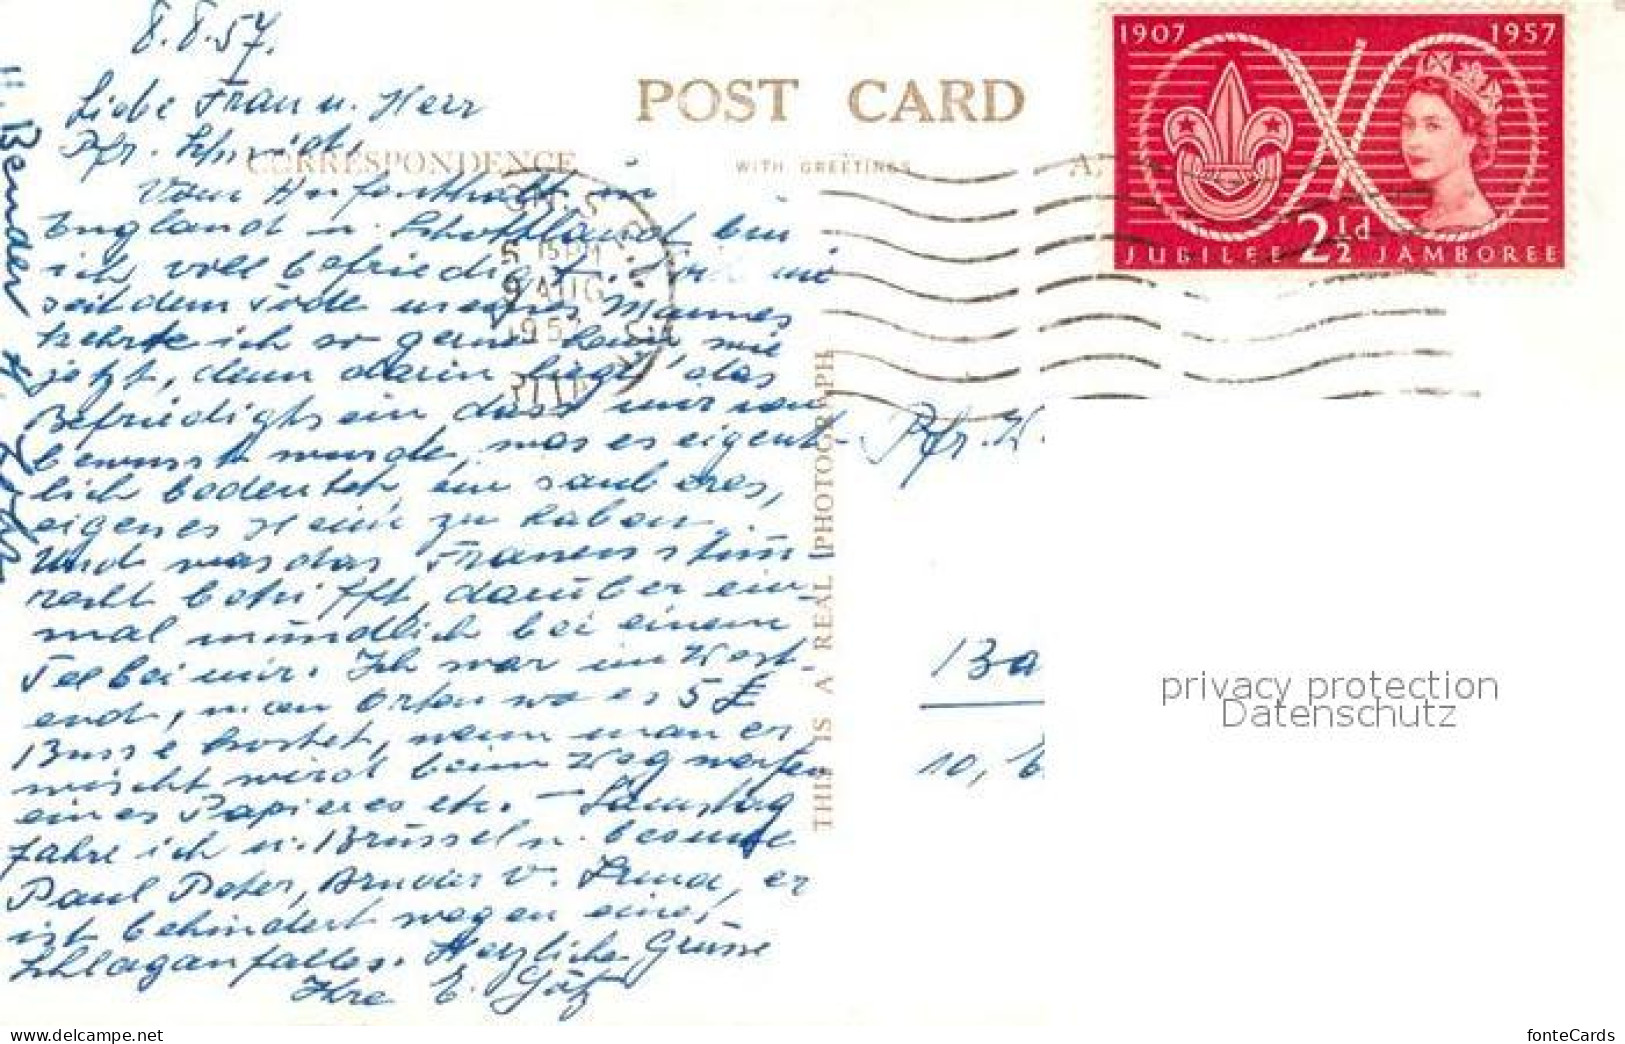 8.8.57.
Liebe Frau u. Herr
Pfr. Schmidt,
Vom Aufenthalt in
England u. Schottland bin
ich voll befriedigt. nie
seit dem Tode meines Mannes
kehrte ich so gern heim wie
jetzt, denn darin liegt das
Befriedigtsein dass mir
bewusst wurde, was es eigent-
lich bedeutet, ein sauberes,
eigenes Heim zu haben.
Und was das Frauenstimm-
recht betrifft, darüber ein-
mal mündlich bei einem
Tee bei mir. Ich war im West-
end, u. an Orten wo es 5 £
Busse kostet, wenn man er-
wischt wird beim Wegwerfen
eines Papieres etc. – Samstag
fahre ich n. Brüssel u. besuche
Paul Peter, er
ist behindert wegen eines
Schlaganfalles. Herzliche Grüsse
Ihre E. Götz
Bender
POST CARD
CORRESPONDENCE
WITH GREETINGS
A
THIS IS A REAL PHOTOGRAPH
9 AUG
195
1907 1957
JUBILEE 2½d JAMBOREE
Pfr.
Ba
10,
privacy protection
Datenschutz
www.delcampe.net
fonteCards